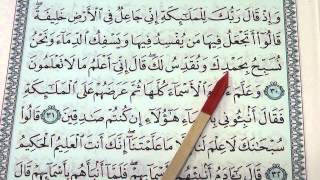 وَإِذْ قَالَ رَبُّكَ لِلْمَلَـٰٓئِكَةِ إِنِّى جَاعِلٌ فِى ٱلْأَرْضِ خَلِيفَةً ۖ
قَالُوٓا۟ أَتَجْعَلُ فِيهَا مَن يُفْسِدُ فِيهَا وَيَسْفِكُ ٱلدِّمَآءَ وَنَحْنُ
نُسَبِّحُ بِحَمْدِكَ وَنُقَدِّسُ لَكَ ۖ قَالَ إِنِّىٓ أَعْلَمُ مَا لَا تَعْلَمُونَ
٣٠ وَعَلَّمَ ٱلْأَسْمَآءَ كُلَّهَا ثُمَّ عَرَضَهُمْ عَلَى ٱلْمَلَـٰٓئِكَةِ
فَقَالَ أَنۢبِـُٔونِى بِأَسْمَآءِ هَـٰٓؤُلَآءِ إِن كُنتُمْ صَـٰدِقِينَ ٣١ قَالُوا۟
سُبْحَـٰنَكَ لَا عِلْمَ لَنَآ إِلَّا مَا عَلَّمْتَنَآ ۖ إِنَّكَ أَنتَ ٱلْعَلِيمُ ٱلْحَكِيمُ
٣٢ قَالَ يَـٰٓـَٔادَمُ أَنۢبِئْهُم بِأَسْمَآئِهِمْ ۖ فَلَمَّآ أَنۢبَأَهُم بِأَسْمَآئِهِمْ قَالَ